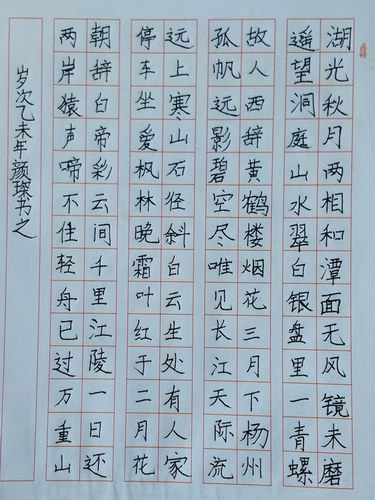 湖光秋月两相和潭面无风镜未磨
遥望洞庭山水翠白银盘里一青螺
故人西辞黄鹤楼烟花三月下杨州
孤帆远影碧空尽唯见长江天际流
远上寒山石径斜白云生处有人家
停车坐爱枫林晚霜叶红于二月花
朝辞白帝彩云间千里江陵一日还
两岸猿声啼不佳轻舟已过万重山
岁次乙未年颜琛书之